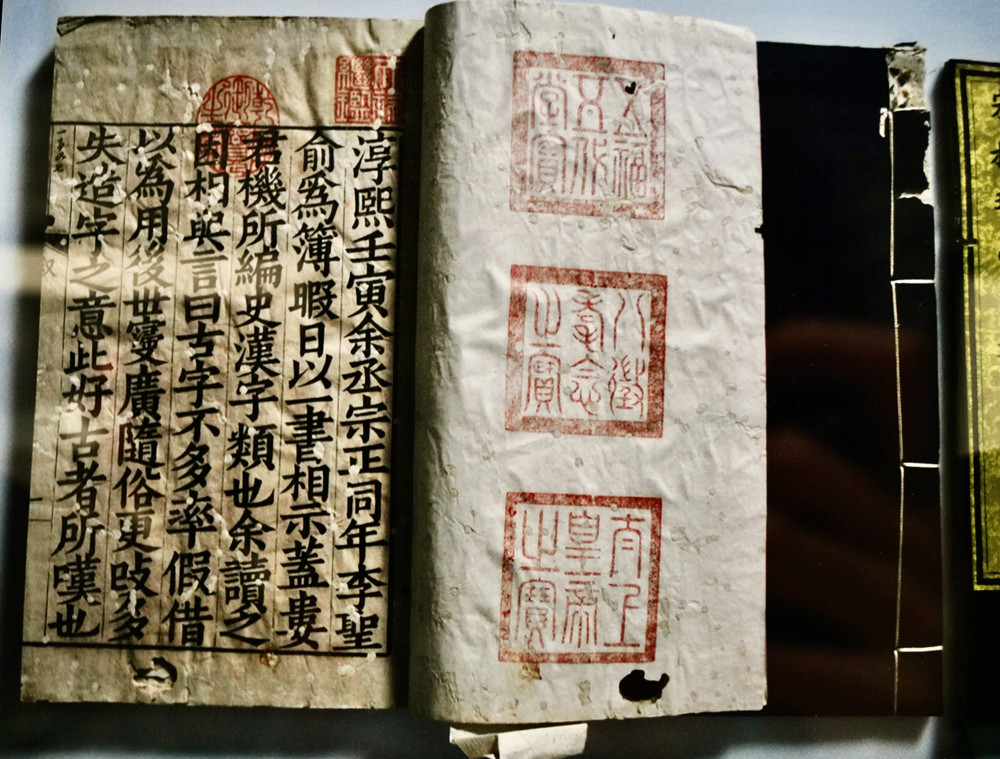 五福
五代
堂寶
八徵
耄念
之寶
太上
皇帝
之寶
天祿
繼鑑
乾隆
御覽
之寶
淳熙壬寅余丞宗正同年李聖
俞爲簿暇日以一書相示蓋婁
君機所編史漢字類也余讀之
因相與言曰古字不多率假借
以爲用後世寖廣隨俗更改多
失造字之意此好古者所嘆也